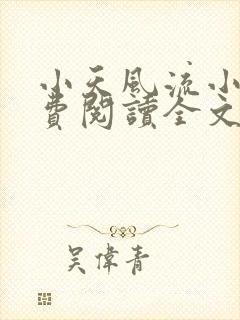 小天風流小
費閱讀全文
吳偉青